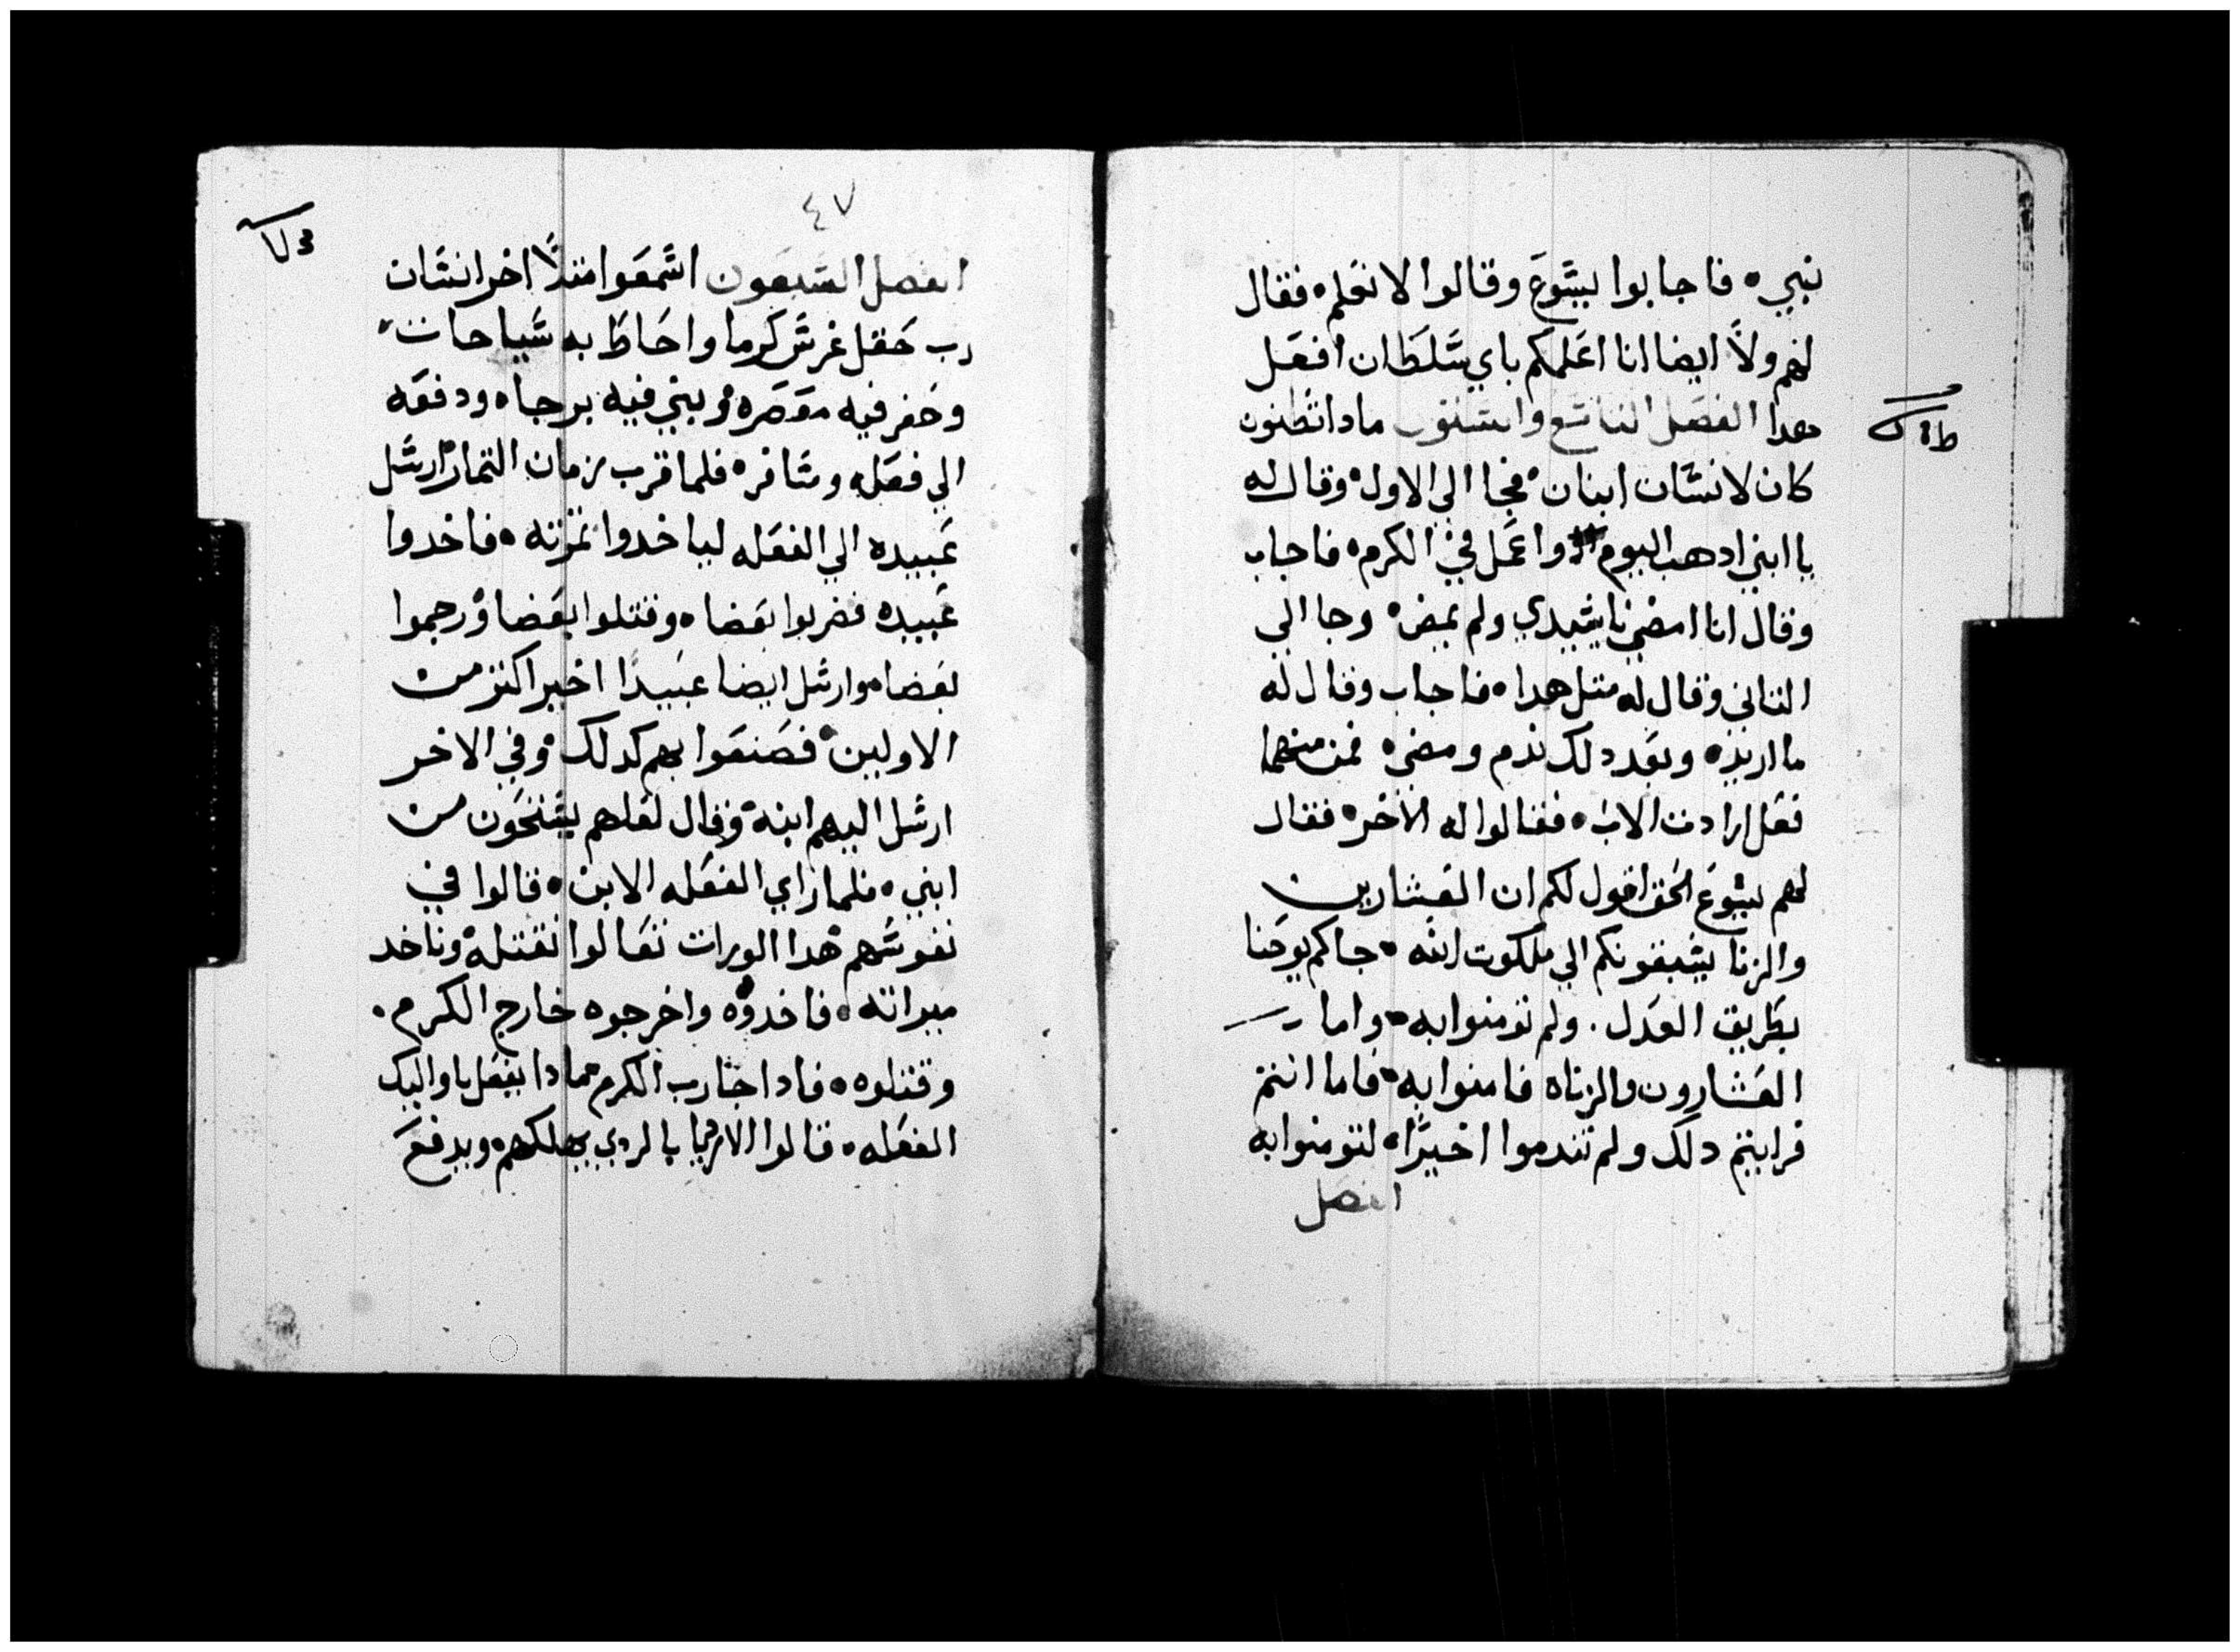 نبي ه فاجابوا يشوع وقالوا لا نعلم ه فقال
لهم ولاً ايضا انا اعلمكم باي سلطان افعل
هدا الفصل التاسع والستون مادا تظنون
كان لانسان ابنان ه فجا الي الاول ه وقال له
يا ابني ادهب اليوم واعمل في الكرم ه فاجاب
وقال انا امضي يا سيدي ولم يمض ه وجا الي
التاني وقال له متل هدا ه فاجاب وقال له
ما اريد ه وبعد دلك ندم ومضي ه فمن منهما
فعل ارادت الاب ه فقالوا له الاخر ه فقال
لهم يسوع الحق اقول لكم ان العشارين
والزنا يسبقونكم الي ملكوت الله ه جاكم يوحنا
بطريق العدل . ولم تومنوا به ه واما
العشارون والزناه فامنوا به ه فاما انتم
فرايتم دلك ولم تندموا اخيرًا ه لتومنوا به
الفصل
٤٧
الفصل السبعون اسمعوا متلاً اخر انسان
رب حقل غرس كرما واحاط به سياحات
وحفر فيه معصره ه وبني فيه برجا ه ودفعه
الي فعله وسافر ه فلما قرب زمان التمار ارسل
عبيده الي الفعله لياخدوا تمرته ه فاخدوا
عبيده فضربوا بعضا ه وقتلوا بعضا ورجموا
بعضا ه وارسل ايضا عبيدًا اخير اكتر من
الاولين ه فصنعوا بهم كدلك ه وفي الاخر
ارسل اليهم ابنه ه وقال لعلهم يستحون من
ابني ه فلما راي الفعله الابن ه قالوا في
نفوسهم هدا الورات تعالوا نقتله ه وناخد
ميراته ه فاخدوه واخرجوه خارج الكرم .
وقتلوه ه فادا جا رب الكرم مادا يفعل باوليك
الفعله ه قالوا الارديا بالردي يهلكهم ه ويدفع